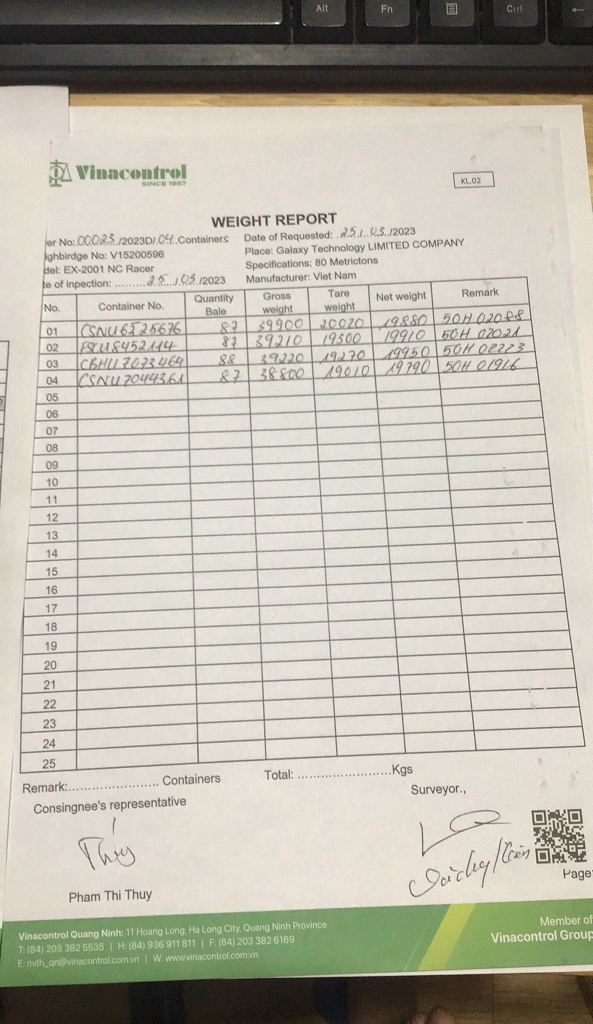 Alt
Fn
Ctrl
Vinacontrol
SINCE 1957
KL.02
WEIGHT REPORT
er No: 00023/2023D/.04.Containers
Date of Requested: .25./.05./2023
ighbirdge No: V15200596
Place: Galaxy Technology LIMITED COMPANY
del: EX-2001 NC Racer
Specifications: 80 Metrictons
te of inpection: .........25./05./2023
Manufacturer: Viet Nam
No. Container No. Quantity Bale Gross weight Tare weight Net weight Remark
01 CSNU6525676 87 39900 20020 19880 50H 02088
02 8452114 87 39210 19300 19910 50H 02021
03 88 39220 19270 19950 50H 02223
04 CSNU7044361 87 38800 19010 19790 50H 01916
05
06
07
08
09
10
11
12
13
14
15
16
17
18
19
20
21
22
23
24
25
Remark:........................ Containers Total: ..........................Kgs
Consingnee's representative
Surveyor.,
Thuy
Pham Thi Thuy
Page
Vinacontrol Quang Ninh: 11 Hoang Long, Ha Long City, Quang Ninh Province
T: (84) 203 382 5535 | H: (84) 936 911 811 | F: (84) 203 382 6169
E: nvth_qn@vinacontrol.com.vn | W: www.vinacontrol.com.vn
Member of
Vinacontrol Group